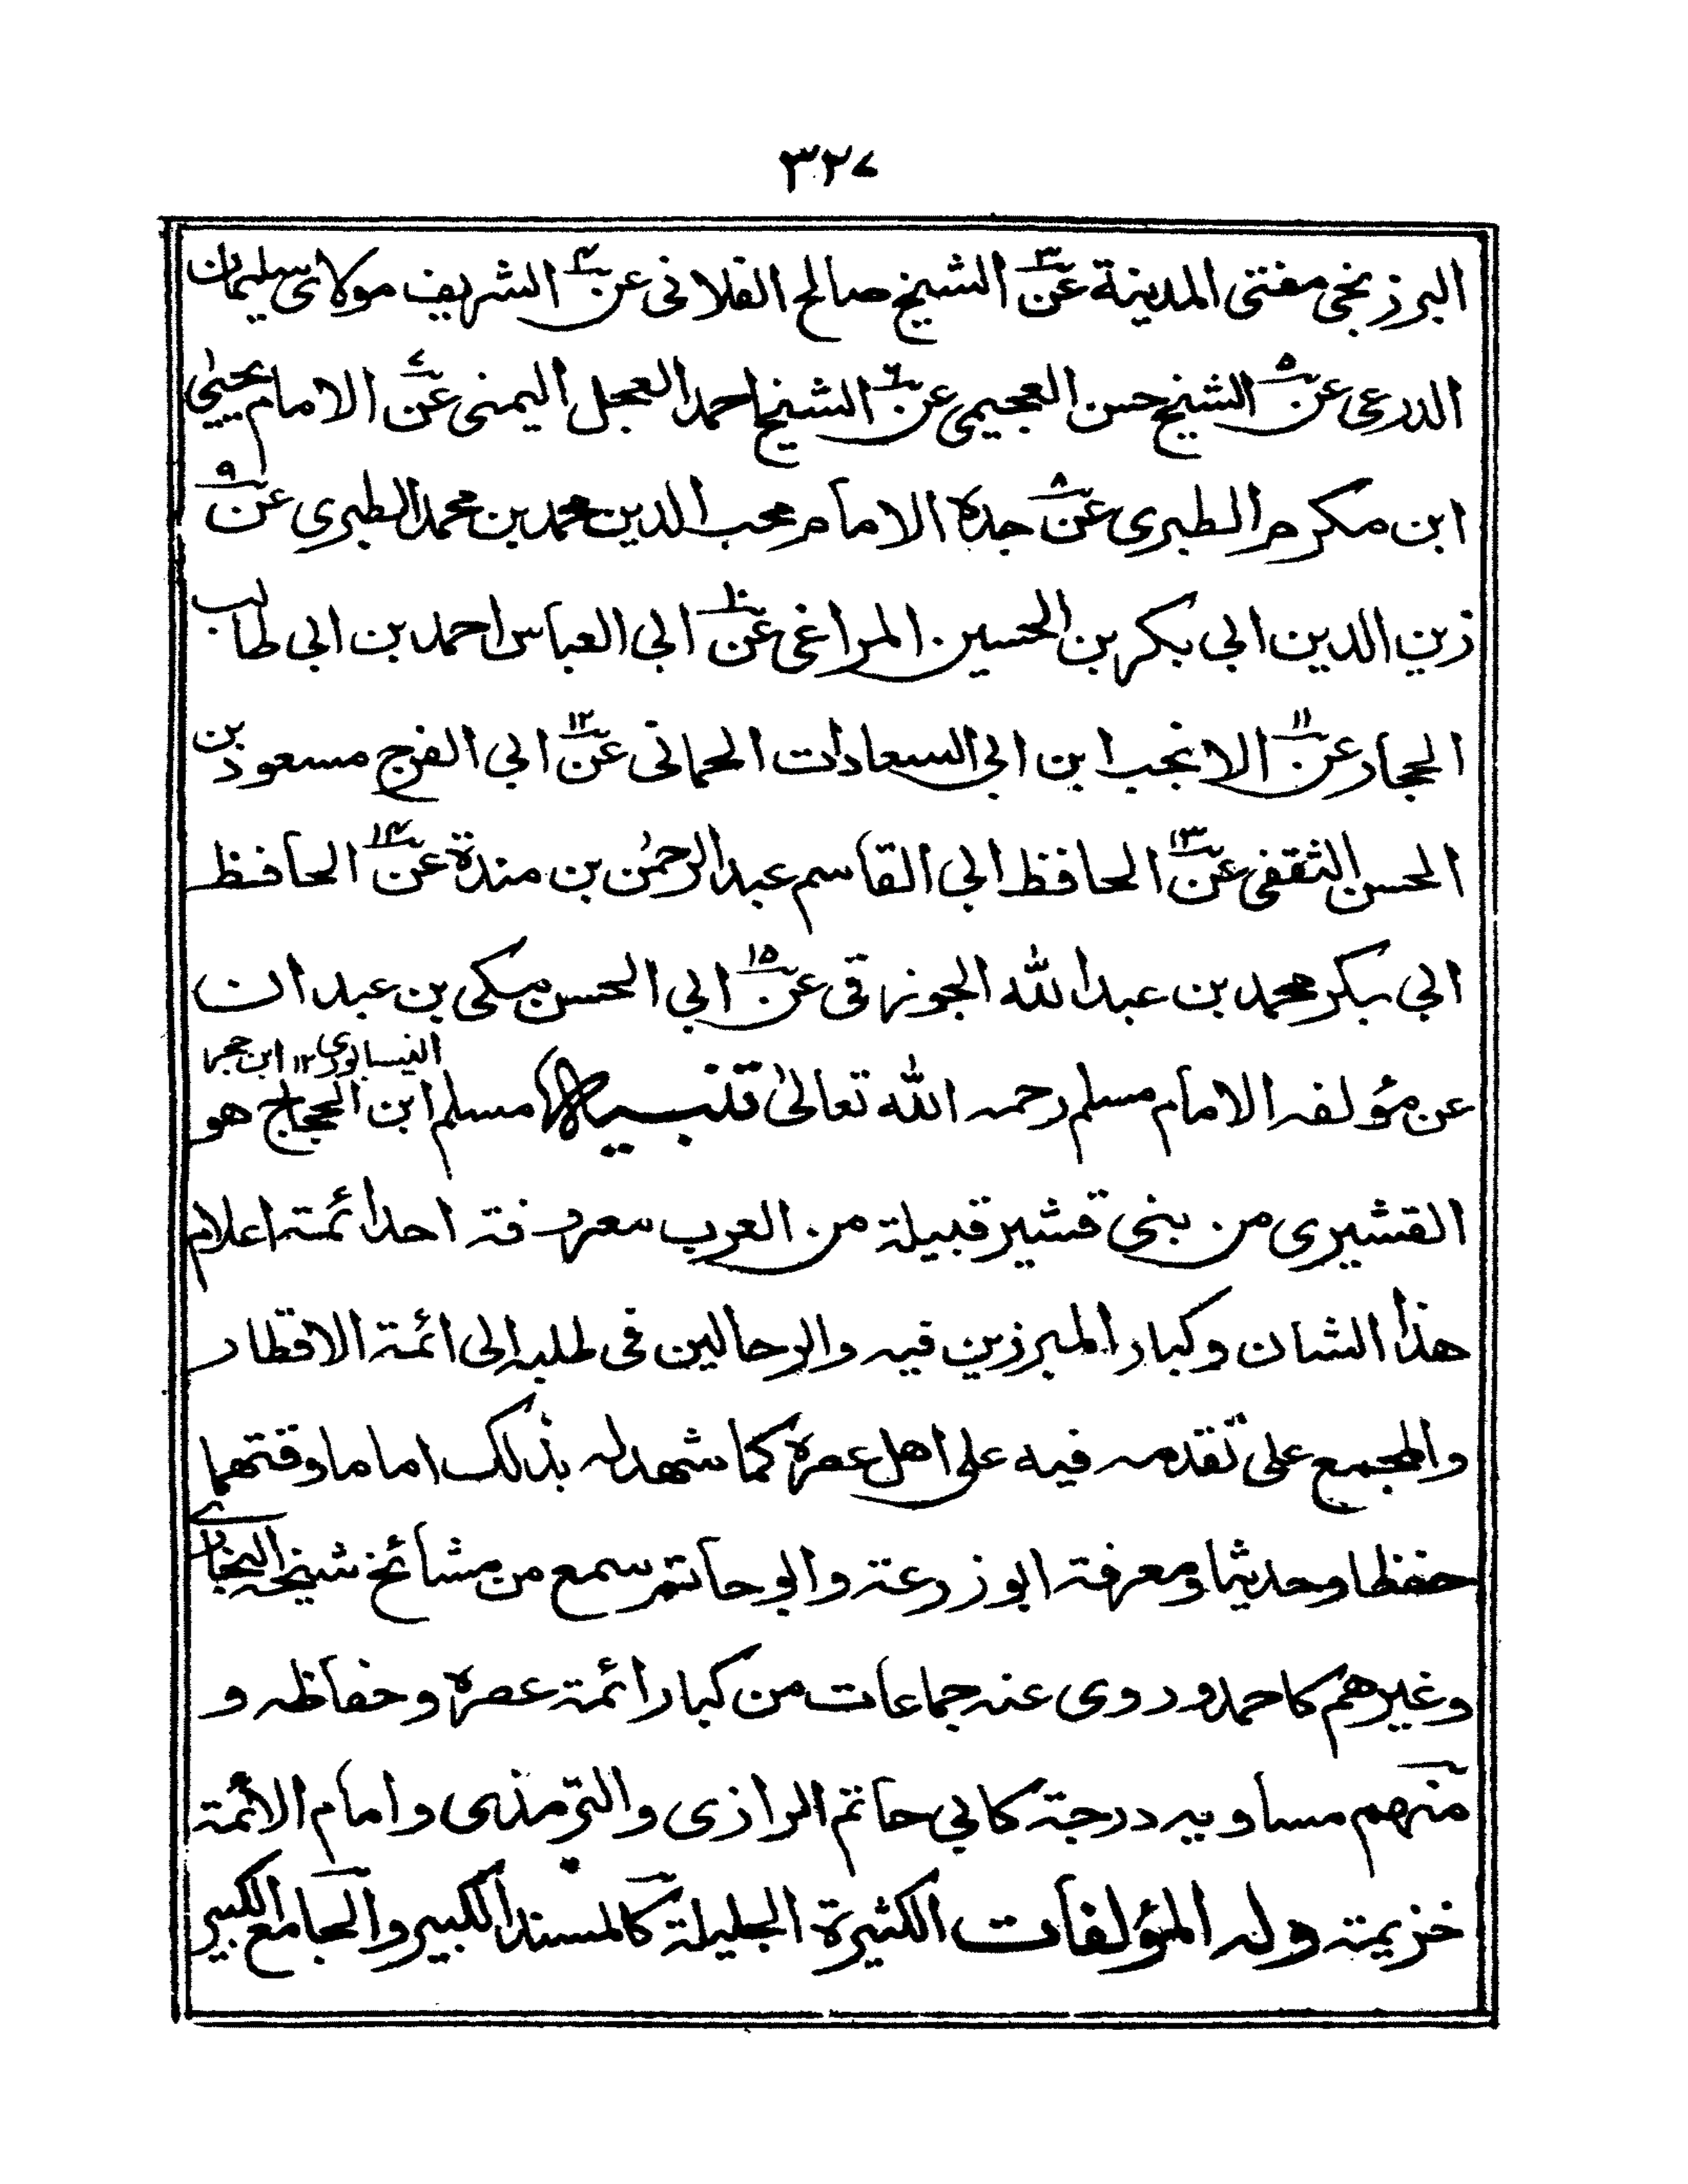 ٣٢٧
البرزنجى مفتى المدينة عن٣ الشيخ صالح الفلانى عن٤ الشريف مولاى سليمان
الدرعى عن٥ الشيخ حسن العجيمى عن٦ الشيخ احمد العجل اليمنى عن٧ الامام يحيىٰ
ابن مكرم الطبرى عن٨ جده الامام محب الدين محمد بن محمد الطبرى عن٩
زين الدين ابي بكر بن الحسين المراغى عن١٠ ابي العباس احمد بن ابي طالب
الحجار عن١١ الانجب ابن ابي السعادات الحمانى عن١٢ ابي الفرج مسعود بن
الحسن الثقفى عن١٣ الحافظ ابي القاسم عبد الرحمٰن بن مندة عن١٤ الحافظ
ابي بكر محمد بن عبد الله الجوزقى عن١٥ ابي الحسن مكى بن عبدان
النيسابورى ١٢ ابن حجر
عن مؤلفه الامام مسلم رحمه الله تعالىٰ تنبيه مسلم ابن الحجاج هو
القشيرى من بنى قشير قبيلة من العرب معروفة احد ائمة اعلام
هذا الشان وكبار المبرزين فيه والرحالين فى طلبه الى ائمة الاقطار
والمجمع على تقدمه فيه على اهل عصره كما شهد له بذلك اماما وقتهما
حفظا وحديثا ومعرفة ابو زرعة وابو حاتم سمع من مشائخ شيخه البخارى
وغيرهم كاحمد وروى عنه جماعات من كبار ائمة عصره وحفاظه و
منهم مساويه درجة كابي حاتم الرازى والترمذى وامام الائمة
خزيمة وله المؤلفات الكثيرة الجليلة كالمسند الكبير والجامع الكبير